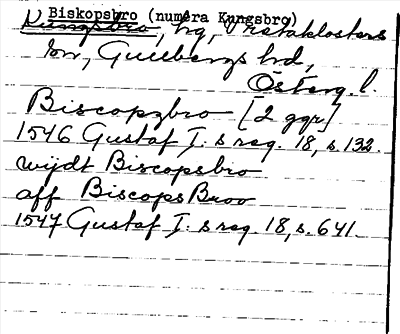 Biskopsbro (numera Kungsbro)
Kungsbro, hg, Vretaklosters
sn, Gullbergs hd,
Österg. l.
Biscopzbro [2 ggr]
1546 Gustaf I:s reg. 18, s. 132.
wijdt Biscopsbro
aff BiscopsBroo
1547 Gustaf I:s reg. 18, s. 641.